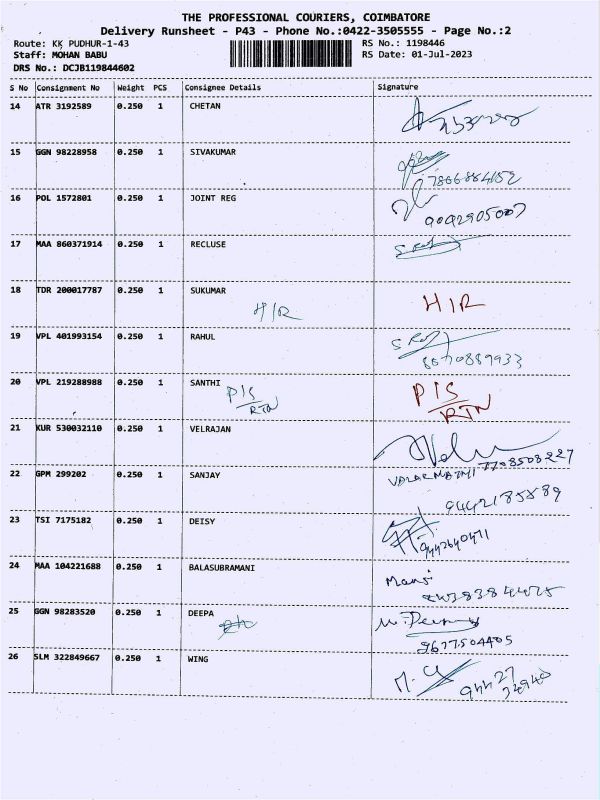 THE PROFESSIONAL COURIERS, COIMBATORE
Delivery Runsheet - P43 - Phone No.:0422-3505555 - Page No.:2
Route: KK PUDHUR-1-43 RS No.: 1198446
Staff: MOHAN BABU RS Date: 01-Jul-2023
DRS No.: DCJB119844602
S No Consignment No Weight PCS Consignee Details Signature
14 ATR 3192589 0.250 1 CHETAN
15 GGN 98228958 0.250 1 SIVAKUMAR
7866864152
16 POL 1572801 0.250 1 JOINT REG
9092905007
17 MAA 860371914 0.250 1 RECLUSE
18 TDR 200017787 0.250 1 SUKUMAR
H/R HIR
19 VPL 401993154 0.250 1 RAHUL
8670889933
20 VPL 219288988 0.250 1 SANTHI
P/S P/S
RTN RTN
21 KUR 530032110 0.250 1 VELRAJAN
Velu
VALARMATHI 7708508227
22 GPM 299202 0.250 1 SANJAY
9442185889
23 TSI 7175182 0.250 1 DEISY
9442640471
24 MAA 104221688 0.250 1 BALASUBRAMANI
Mani
25 GGN 98283520 0.250 1 DEEPA
9677504405
26 SLM 322849667 0.250 1 WING
94427
34940